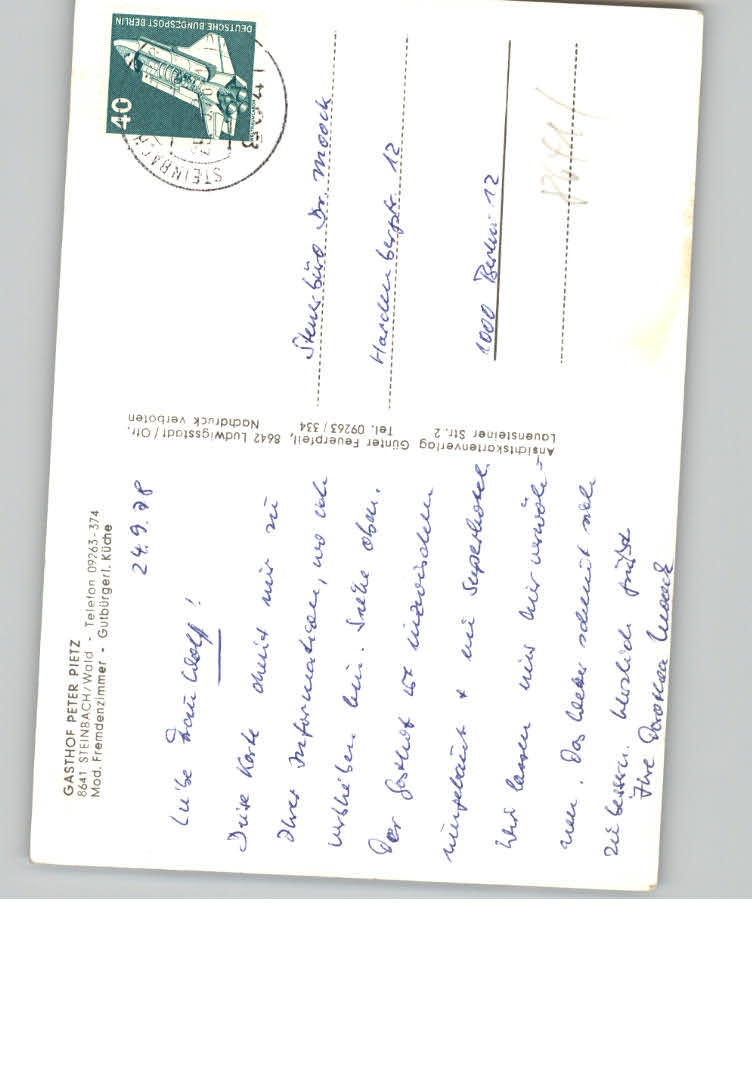 GASTHOF PETER PIETZ
8641 STEINBACH/Wald - Telefon 09263-374
Mod. Fremdenzimmer - Gutbürgerl. Küche
24.9.78
Liebe Frau Wolff!
Diese Karte dient mir zu
Ihrer Information, wo ich
verblieben bin. Siehe oben.
Der Gasthof ist inzwischen
umgebaut + ein Superhotel.
Wir lassen uns hier verwöh-
nen. Das Wetter scheint sich
zu bessern. Herzlich grüßt
Ihre Dorothea Moock
Ansichtskartenverlag Günter Feuerpfeil, 8642 Ludwigsstadt/Ofr.
Lauensteiner Str. 2 Tel. 09263/334 Nachdruck verboten
DEUTSCHE BUNDESPOST BERLIN
40
STEINBACH
Steuerbüro Dr. Moock
Hardenbergstr. 12
1000 Berlin 12